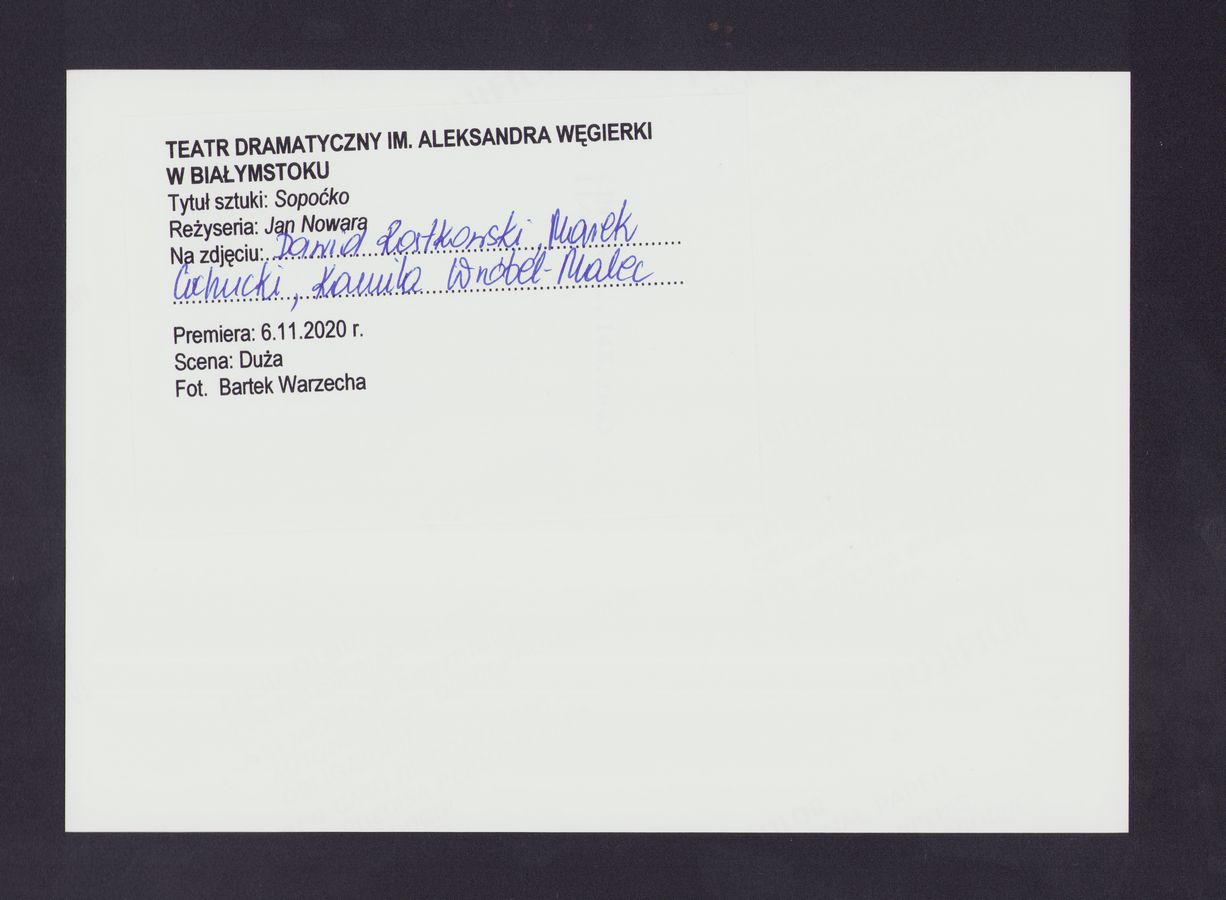 TEATR DRAMATYCZNY IM. ALEKSANDRA WĘGIERKI
W BIAŁYMSTOKU
Tytuł sztuki: Sopoćko
Reżyseria: Jan Nowara
Na zdjęciu: Dawid Rostkowski, Marek
Cichucki, Kamila Wróbel-Malec
Premiera: 6.11.2020 r.
Scena: Duża
Fot. Bartek Warzecha